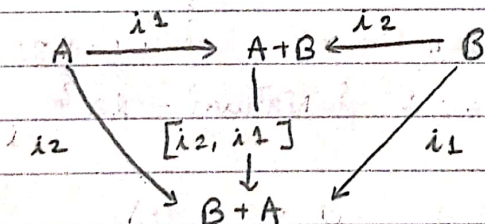 i1 i2
A A+B B
i2 [i2, i1] i1
B+A